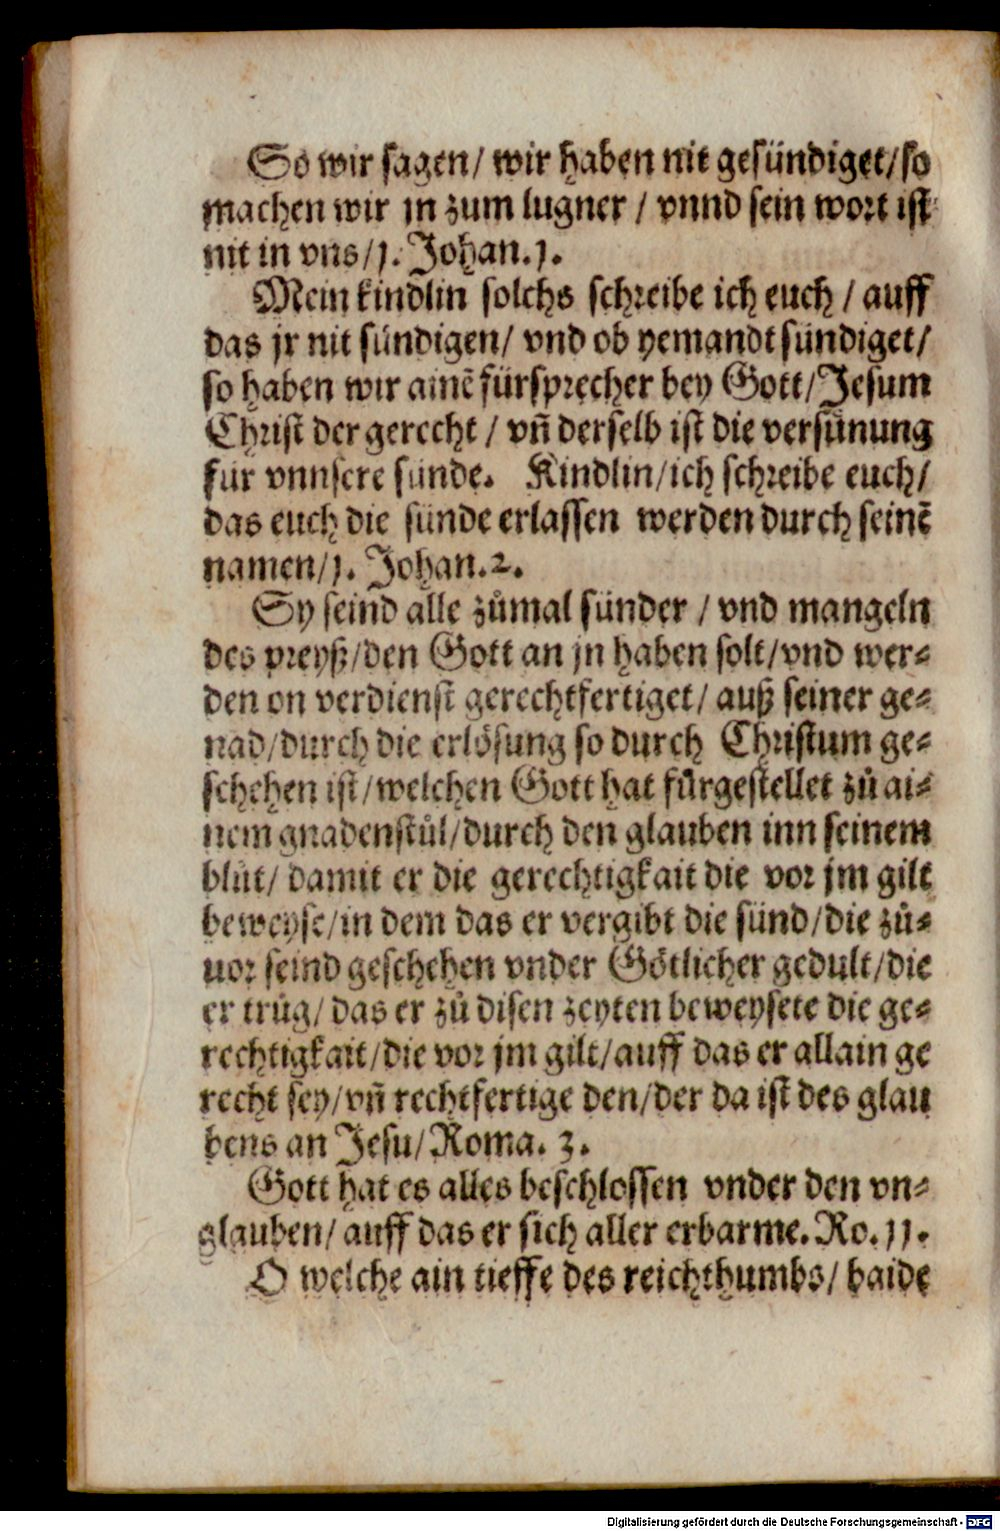 So wir sagen/ wir haben nit gesündiget/so
machen wir jn zum lugner / vnnd sein wort ist
nit in vns/1. Johan.1.
Mein kindlin solchs schreibe ich euch / auff
das jr nit sündigen/ vnd ob yemandt sündiget/
so haben wir ainē fürsprecher bey Gott/Jesum
Christ der gerecht / vñ derselb ist die versünung
für vnnsere sünde. Kindlin/ich schreibe euch/
das euch die sünde erlassen werden durch seinē
namen/1. Johan.2.
Sy seind alle zůmal sünder / vnd mangeln
des preyß/den Gott an jn haben solt/vnd wer⸗
den on verdienst gerechtfertiget/ auß seiner ge⸗
nad/durch die erlösung so durch Christum ge⸗
schehen ist/welchen Gott hat fürgestellet zů ai⸗
nem gnadenstůl/durch den glauben inn seinem
blůt/ damit er die gerechtigkait die vor jm gilt
beweyse/in dem das er vergibt die sünd/die zů⸗
uor seind geschehen vnder Götlicher gedult/die
er trůg/ das er zů disen zeyten beweysete die ge⸗
rechtigkait/die vor jm gilt/auff das er allain ge
recht sey/vñ rechtfertige den/der da ist des glau
bens an Jesu/Roma. 3.
Gott hat es alles beschlossen vnder den vn⸗
glauben/ auff das er sich aller erbarme. Ro.11.
O welche ain tieffe des reichthumbs/ baide
Digitalisierung gefördert durch die Deutsche Forschungsgemeinschaft - DFG